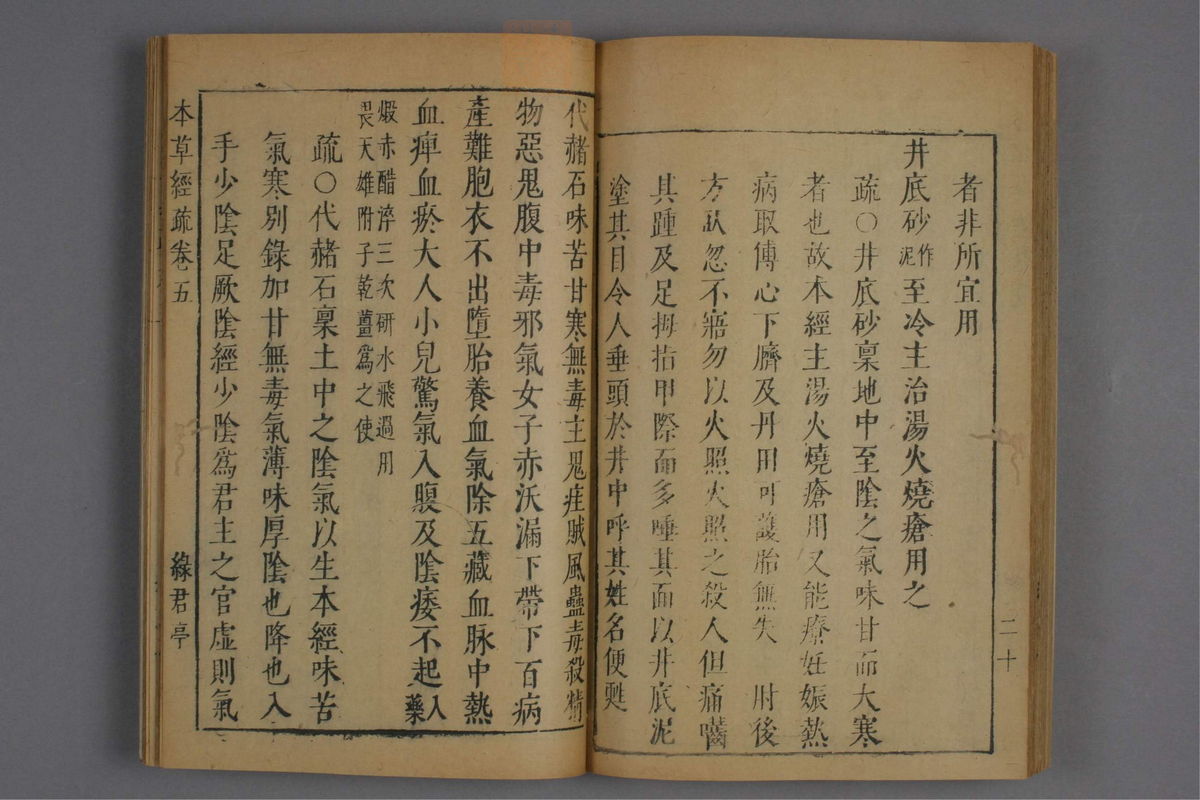 者非所宜用
井底砂作泥至冷主治湯火燒瘡用之
疏○井底砂稟地中至陰之氣味甘而大寒
者也故本經主湯火燒瘡用又能療妊娠熱
病取傅心下臍及丹田可護胎無失 肘後
方臥忽不寤勿以火照火照之殺人但痛嚙
其踵及足拇指甲際而多唾其面以井底泥
塗其目令人垂頭於井中呼其姓名便甦
二十
代赭石味苦甘寒無毒主鬼疰賊風蠱毒殺精
物惡鬼腹中毒邪氣女子赤沃漏下帶下百病
產難胞衣不出墮胎養血氣除五藏血脉中熱
血痺血瘀大人小兒驚氣入腹及陰痿不起入藥
煆赤醋淬三次研水飛過用
畏天雄附子乾薑爲之使
疏○代赭石稟土中之陰氣以生本經味苦
氣寒別錄加甘無毒氣薄味厚陰也降也入
手少陰足厥陰經少陰爲君主之官虛則氣
本草經疏卷五
綠君亭